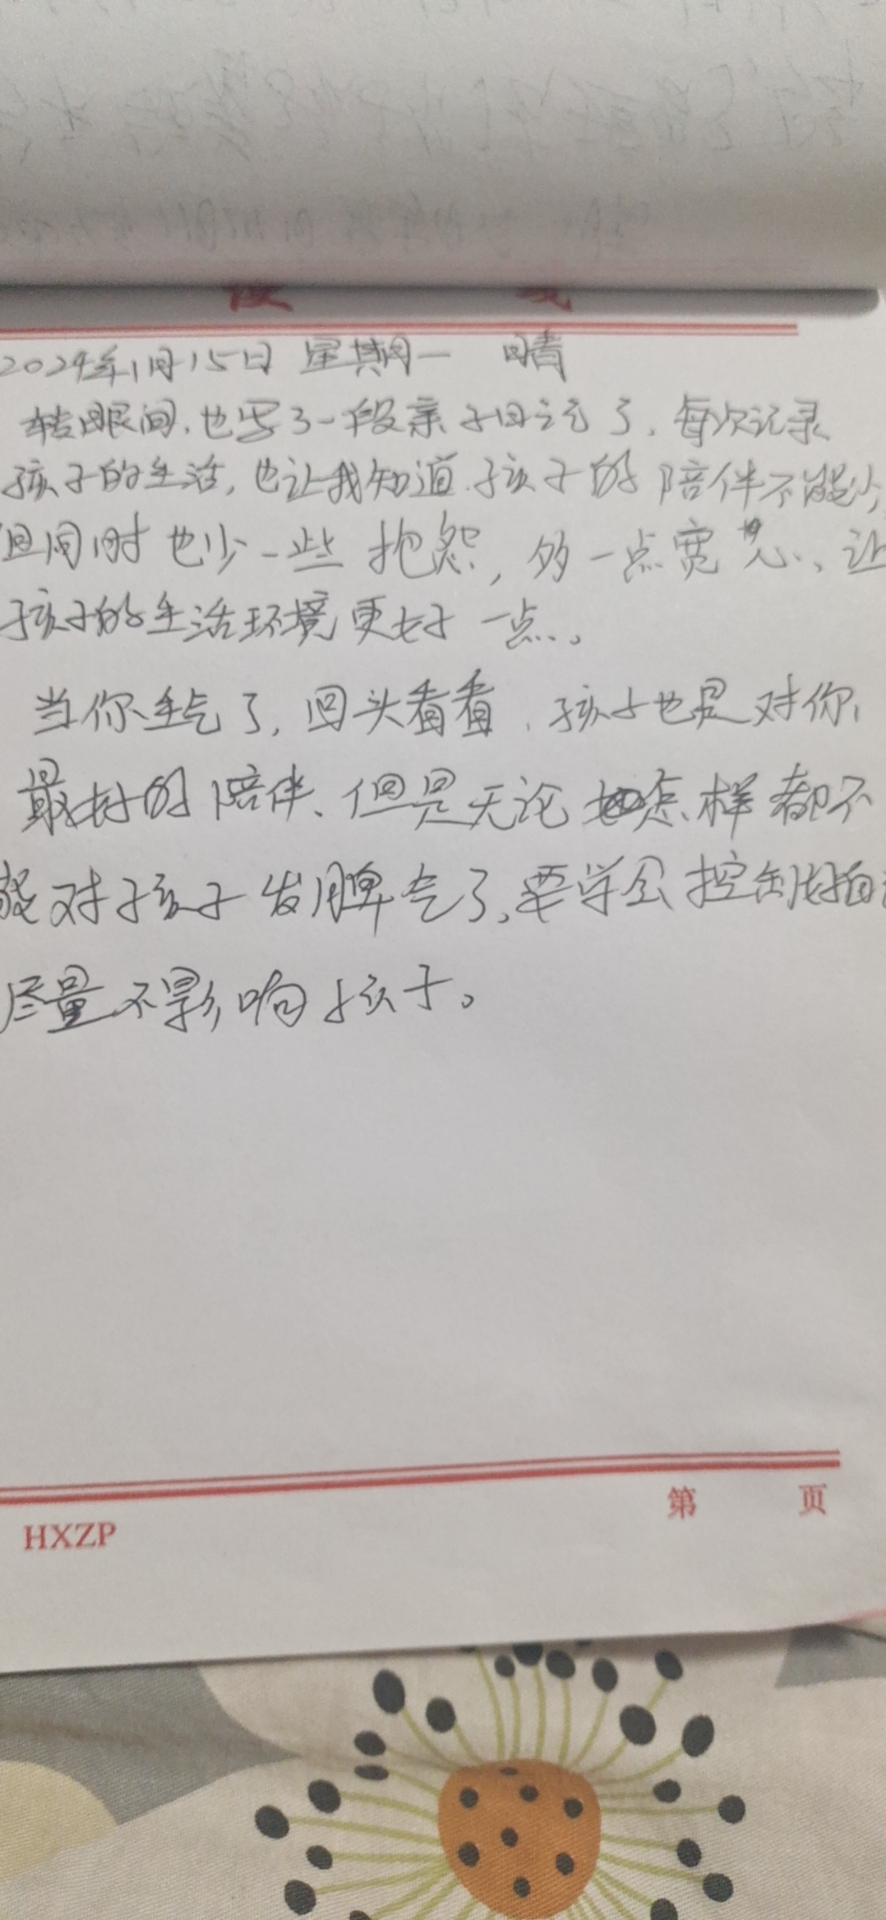 2024年1月15日 星期一 晴
转眼间,也写了一段亲子日记了,每次记录
孩子的生活,也让我知道孩子的陪伴不能少,
且同时也少一些抱怨,多一点宽心、让
孩子的生活环境更好一点。
当你生气了,回头看看,孩子也是对你
最好的陪伴、但是无论怎样都不
能对孩子发脾气了,要学会控制好自
尽量不影响孩子。
第 页
HXZP